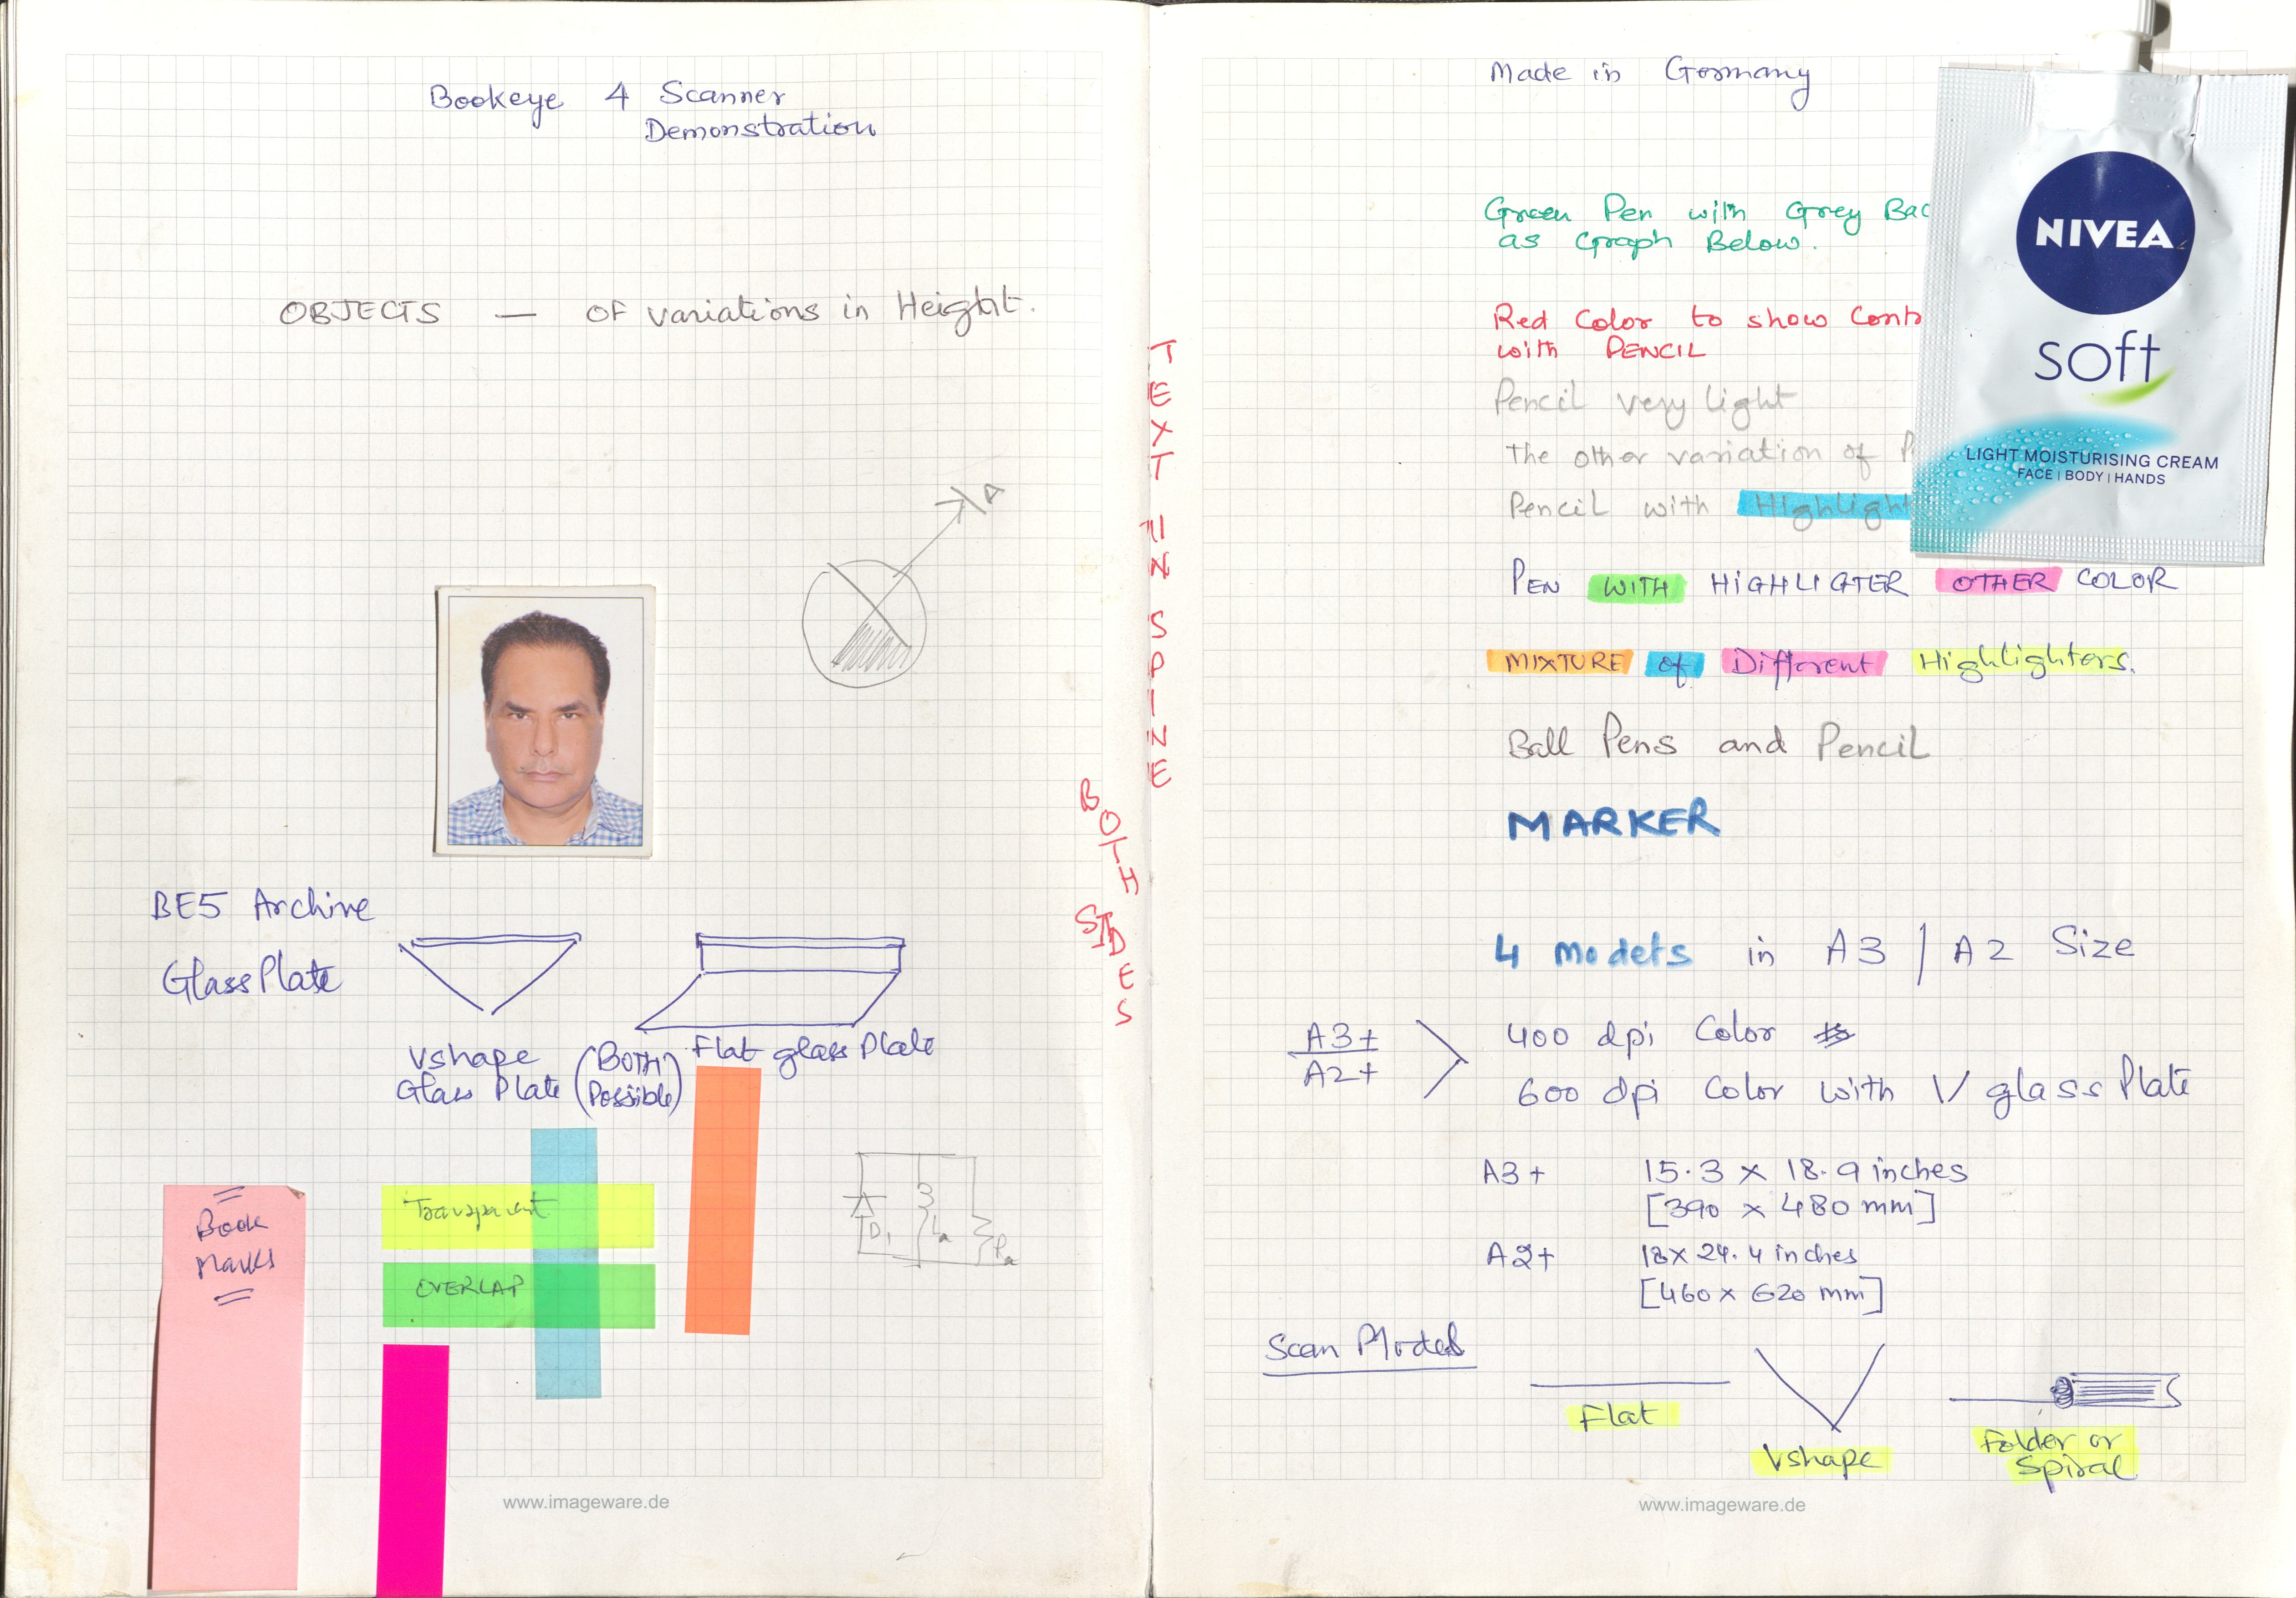 Bookeye 4 Scanner
Demonstration
OBJECTS — OF variations in Height.
A
BE5 Archive
Glass Plate
Vshape
Glass Plate
(BOTH
Possible)
Flat glass Plate
Book
Marks
Transparent
OVERLAP
D1
La
Ra
www.imageware.de
TEXT IN SPINE
BOTH SIDES
Made in Germany
Green Pen with Grey Bac
as Graph Below.
Red Color to show Contr
with PENCIL
Pencil very light
The other variation of P
Pencil with Highlight
PEN WITH HIGHLIGHTER OTHER COLOR
MIXTURE of Different Highlighters.
Ball Pens and Pencil
MARKER
4 models in A3 / A2 Size
A3+
A2+
400 dpi Color
600 dpi Color with V glass Plate
A3+ 15.3 x 18.9 inches
[390 x 480 mm]
A2+ 18 x 24.4 inches
[460 x 620 mm]
Scan Modes
Flat
Vshape
Folder or
Spiral
www.imageware.de
NIVEA
soft
LIGHT MOISTURISING CREAM
FACE | BODY | HANDS